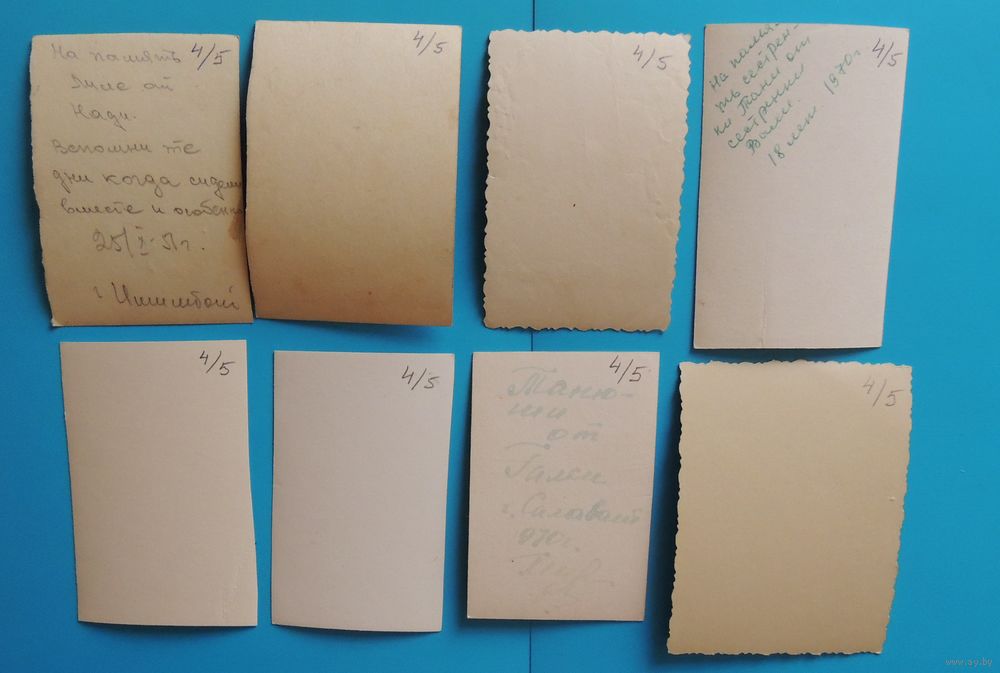 На память 4/5
Гуле от
Нади.
Вспомни те
дни когда сидели
вместе и особенно
25/X-51г.
г Ишимбай
4/5
4/5
4/5
На памя-
ть сестрен-
ки Тани от
сестренки
Вали.
18 лет. 1970г
4/5
4/5
4/5
Таню-
ши
от
Гали
г. Салават
970г.
4/5
www.ay.by